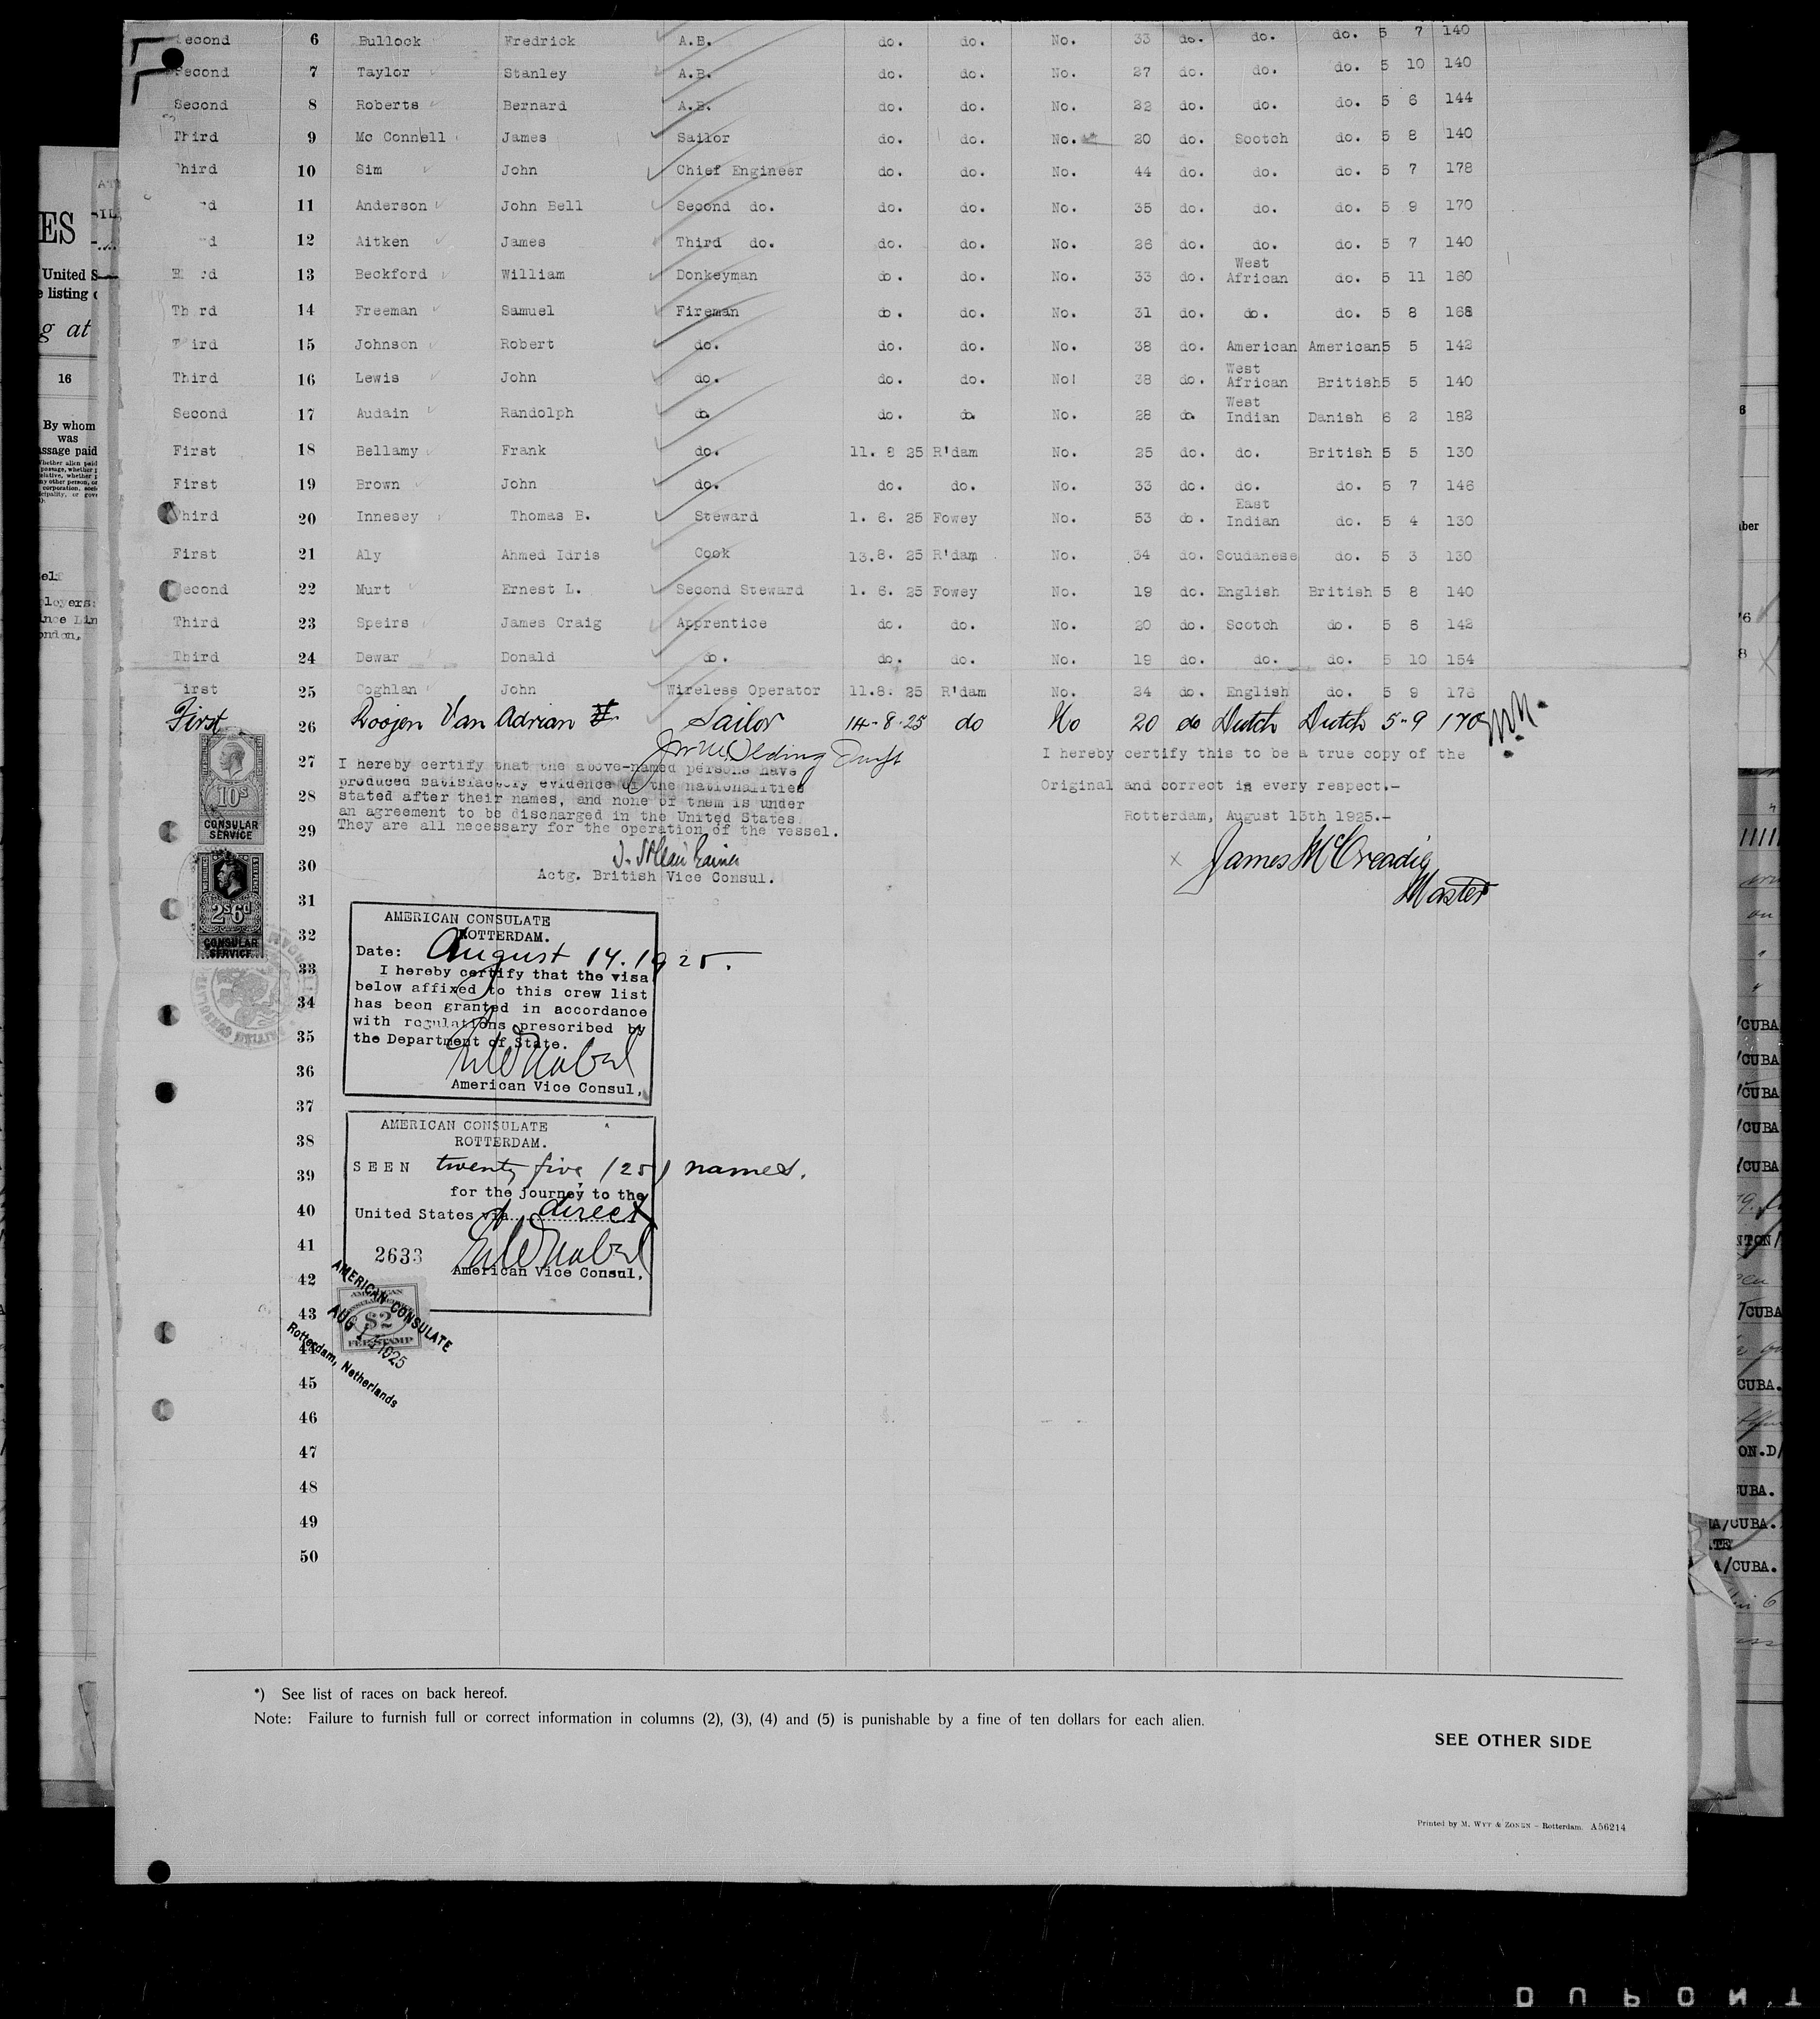 Second 6 Bullock Fredrick A.B. do. do. No. 33 do. do. do. 5 7 140
Second 7 Taylor Stanley A.B. do. do. No. 27 do. do. do. 5 10 140
Second 8 Roberts Bernard A.B. do. do. No. 22 do. do. do. 5 6 144
Third 9 Mc Connell James Sailor do. do. No. 20 do. Scotch do. 5 8 140
hird 10 Sim John Chief Engineer do. do. No. 44 do. do. do. 5 7 178
rd 11 Anderson John Bell Second do. do. do. No. 35 do. do. do. 5 9 170
d 12 Aitken James Third do. do. do. No. 26 do. do. do. 5 7 140
rd 13 Beckford William Donkeyman do. do. No. 33 do. West African do. 5 11 160
Third 14 Freeman Samuel Fireman do. do. No. 31 do. do. do. 5 8 168
Third 15 Johnson Robert do. do. do. No. 38 do. American American 5 5 142
Third 16 Lewis John do. do. do. No! 38 do. West African British 5 5 140
Second 17 Audain Randolph do. do. do. No. 28 do. West Indian Danish 6 2 182
First 18 Bellamy Frank do. 11. 8 25 R'dam No. 25 do. do. British 5 5 130
First 19 Brown John do. do. do. No. 33 do. do. do. 5 7 146
Third 20 Innesey Thomas B. Steward 1. 6. 25 Fowey No. 53 do. East Indian do. 5 4 130
First 21 Aly Ahmed Idris Cook 13.8. 25 R'dam No. 34 do. Soudanese do. 5 3 130
Second 22 Murt Ernest L. Second Steward 1. 6. 25 Fowey No. 19 do. English British 5 8 140
Third 23 Speirs James Craig Apprentice do. do. No. 20 do. Scotch do. 5 6 142
Third 24 Dewar Donald do. do. do. No. 19 do. do. do. 5 10 154
First 25 Coghlan John Wireless Operator 11.8. 25 R'dam No. 24 do. English do. 5 9 176
First 26 Roojen Van Adrian Sailor 14-8-25 do No 20 do Dutch Dutch 5-9 170
27
I hereby certify that the above-named persons have
produced satisfactory evidence of the nationalities
28
stated after their names, and none of them is under
an agreement to be discharged in the United States
29
They are all necessary for the operation of the vessel.
30
Actg. British Vice Consul.
I hereby certify this to be a true copy of the
Original and correct in every respect.-
Rotterdam, August 13th 1925.-
James McCreadie
Master
10s
CONSULAR
SERVICE
2s6d
CONSULAR
SERVICE
31
AMERICAN CONSULATE
32
ROTTERDAM.
Date: August 14. 1925.
33
I hereby certify that the visa
below affixed to this crew list
34
has been granted in accordance
with regulations prescribed by
35
the Department of State.
36
American Vice Consul,
37
AMERICAN CONSULATE
38
ROTTERDAM.
39
SEEN twenty five (25) names.
for the journey to the
40
United States via direct
41
2633
American Vice Consul,
42
43
AMERICAN CONSULATE
$2
FEE STAMP
AUG 1925
Rotterdam, Netherlands
44
45
46
47
48
49
50
*) See list of races on back hereof.
Note: Failure to furnish full or correct information in columns (2), (3), (4) and (5) is punishable by a fine of ten dollars for each alien.
SEE OTHER SIDE
Printed by M. WYT & ZONEN - Rotterdam. A56214
ES
United S
listing
g at
16
By whom
was
passage paid
/CUBA
/CUBA
/CUBA
/CUBA
/CUBA
/CUBA
CUBA.
ON.D/
UBA.
A/CUBA.
A/CUBA.
DUPONT